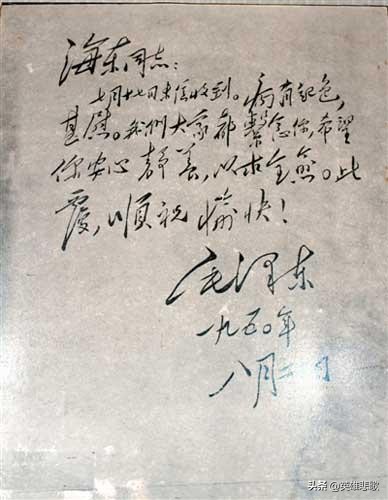 海东同志：
七月十七日来信收到。病有起色，
甚慰。我们大家都繫念你，希望
你安心静养，以求全愈。此
覆，顺祝愉快！
毛泽东
一九五〇年
八月二日
头条@英雄悲歌